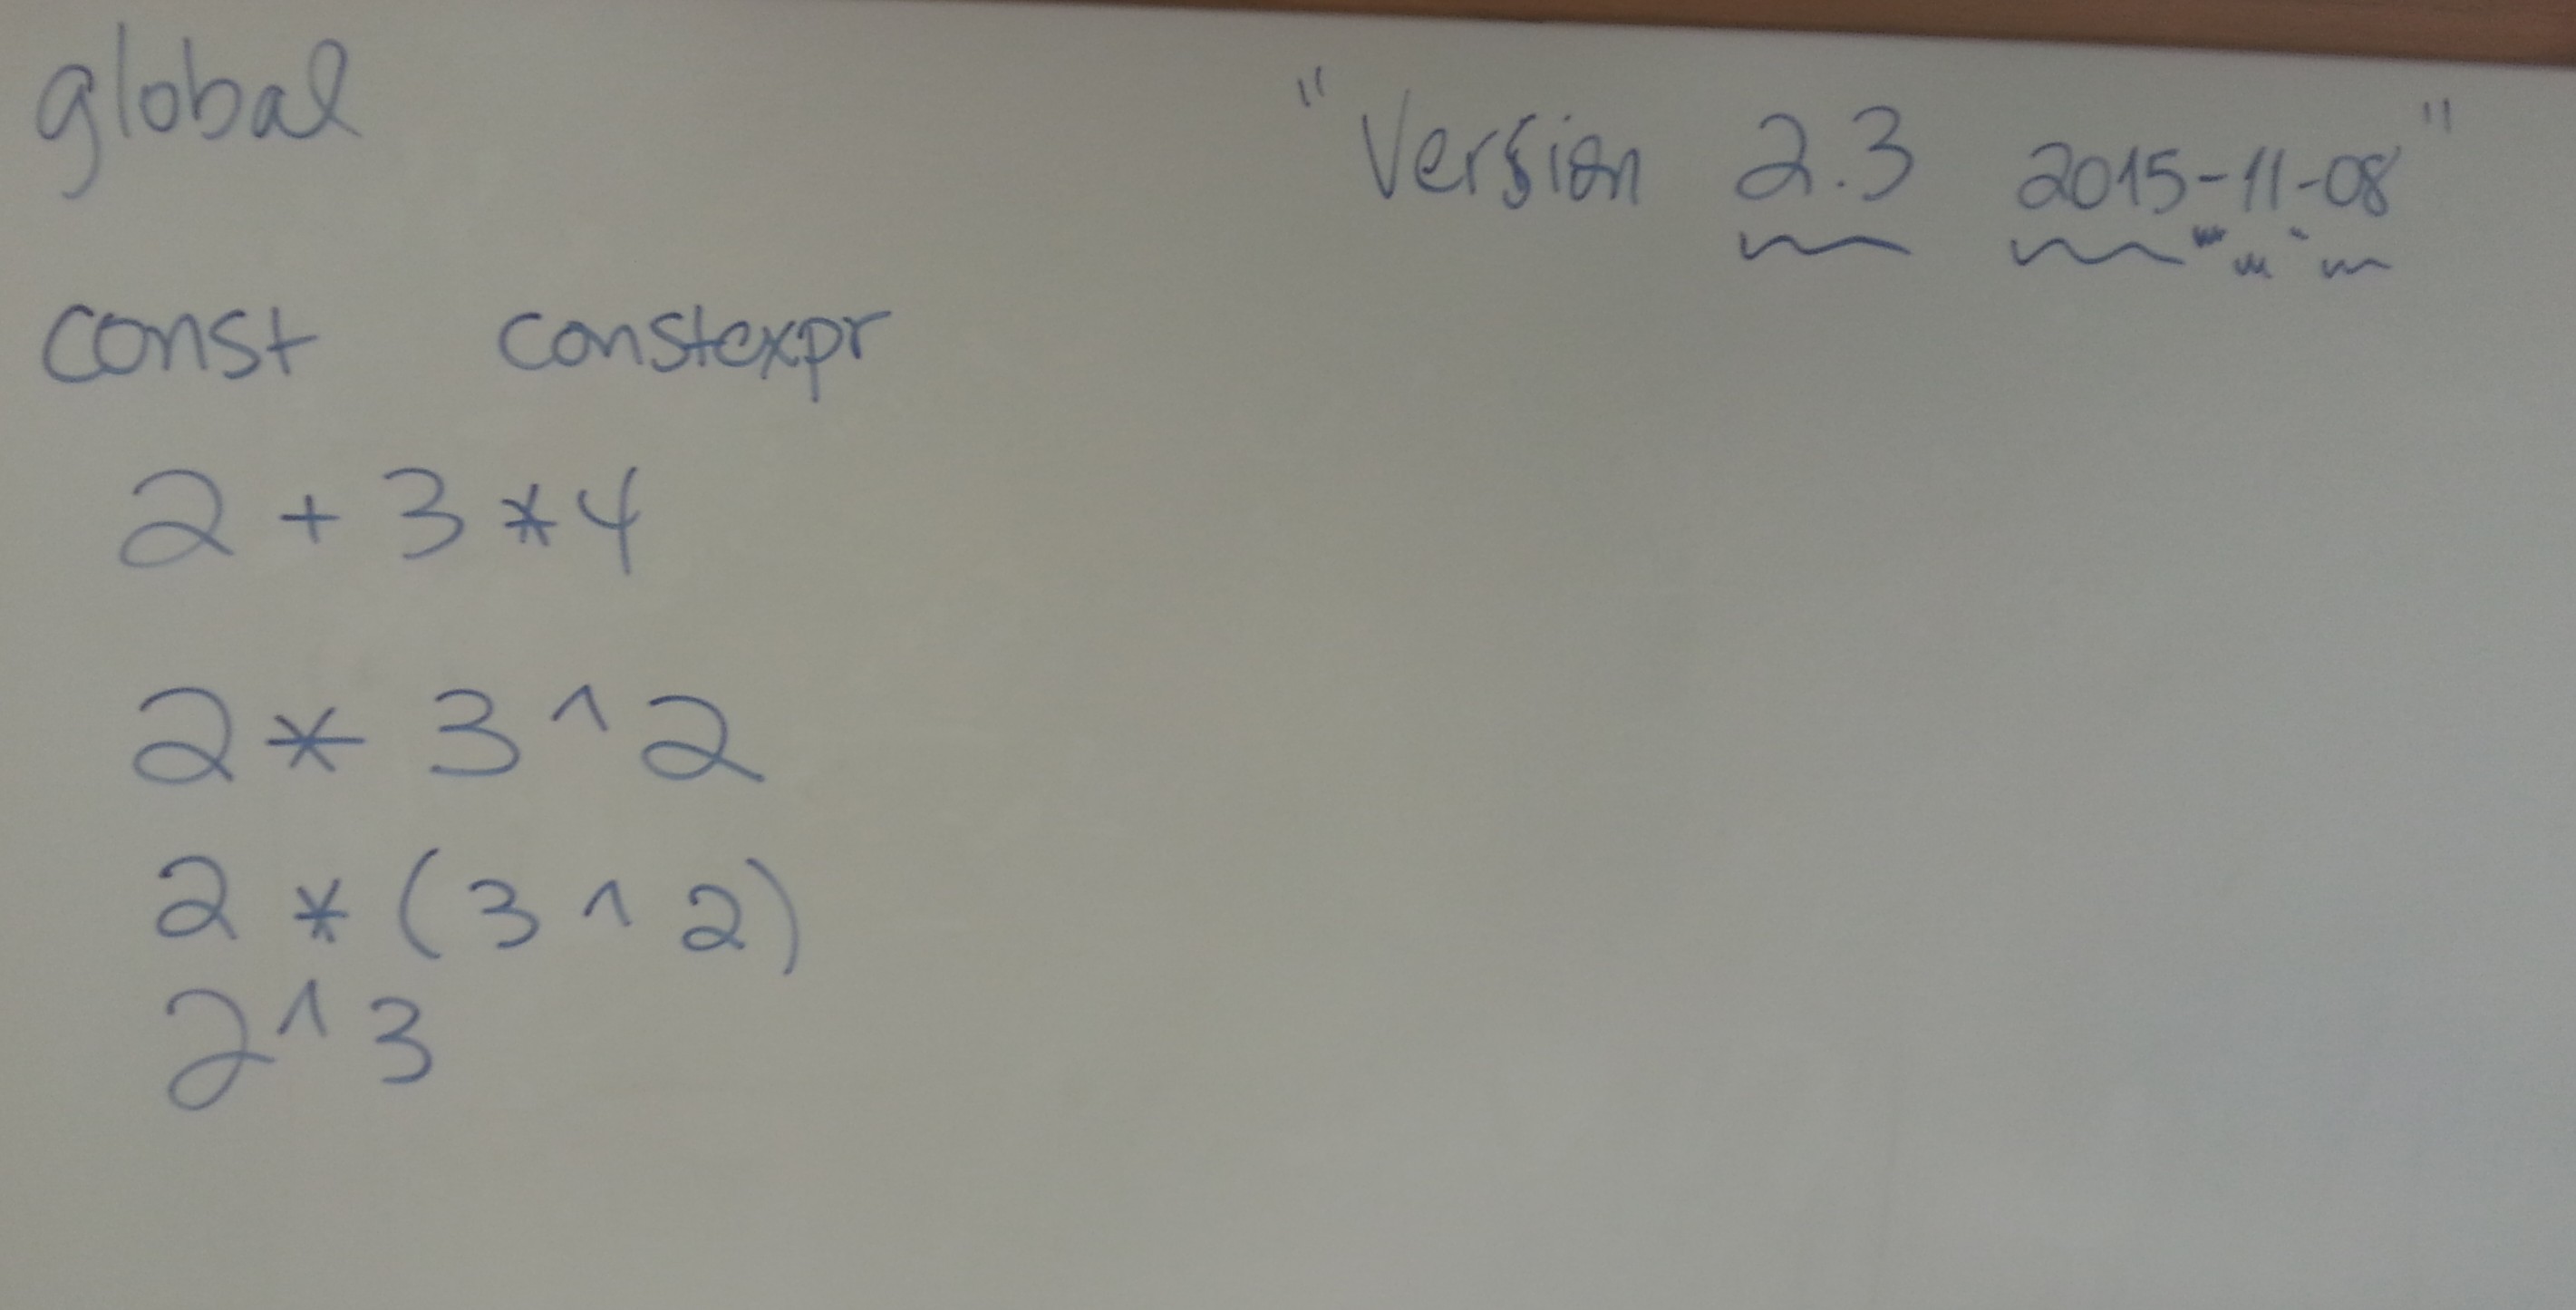 global
"Version 2.3 2015-11-08"
const constexpr
2 + 3 * 4
2 * 3 ^ 2
2 * (3 ^ 2)
2 ^ 3